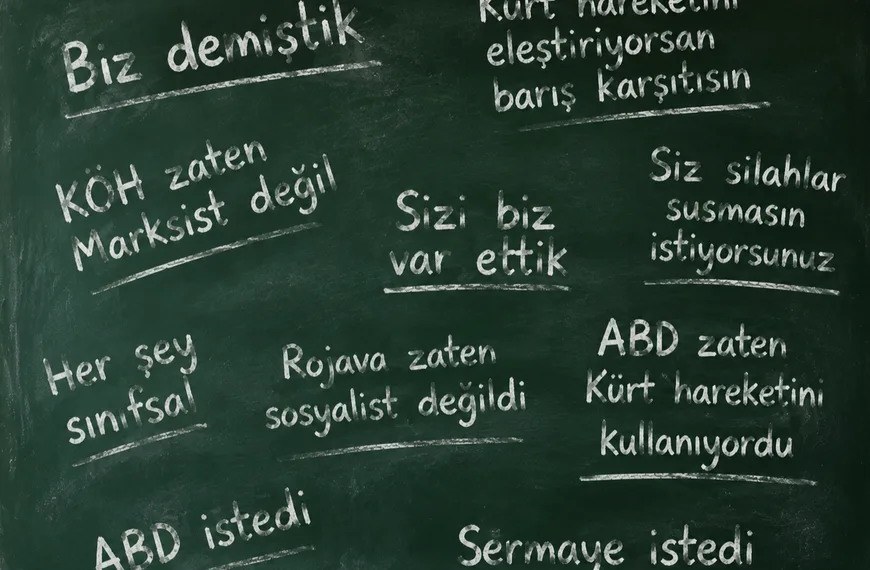 Biz demiştik
Kürt hareketini
eleştiriyorsan
barış karşıtısın
KÖH zaten
Marksist değil
Sizi biz
var ettik
Siz silahlar
susmasın
istiyorsunuz
Her şey
sınıfsal
Rojava zaten
sosyalist değildi
ABD zaten
Kürt hareketini
kullanıyordu
ABD istedi
Sermaye istedi